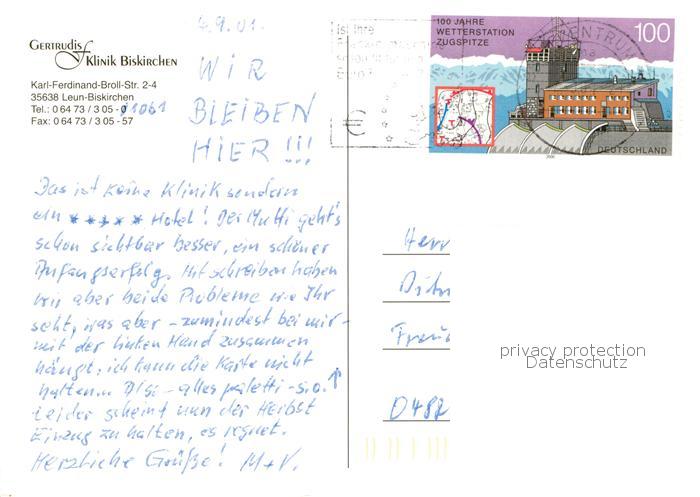 4.9.01.
GERTRUDIS
Klinik Biskirchen
Karl-Ferdinand-Broll-Str. 2-4
35638 Leun-Biskirchen
Tel.: 0 64 73 / 3 05 -
Fax: 0 64 73 / 3 05 - 57
WIR
BLEIBEN
HIER !!!
100 JAHRE
WETTERSTATION
ZUGSPITZE
100
DEUTSCHLAND
2000
Das ist keine Klinik sondern
ein ***** Hotel! Der Mutti geht's
schon sichtbar besser, ein schöner
Anfangserfolg. Mit schreiben haben
wir aber beide Probleme wie Ihr
seht, was aber - zumindest bei mir -
mit der linken Hand zusammen
hängt, ich kann die Karte nicht
halten. Also - alles paletti - s.o. ↑
Leider scheint nun der Herbst
Einzug zu halten, es regnet.
Herzliche Grüße! M+V.
Herr
privacy protection
Datenschutz